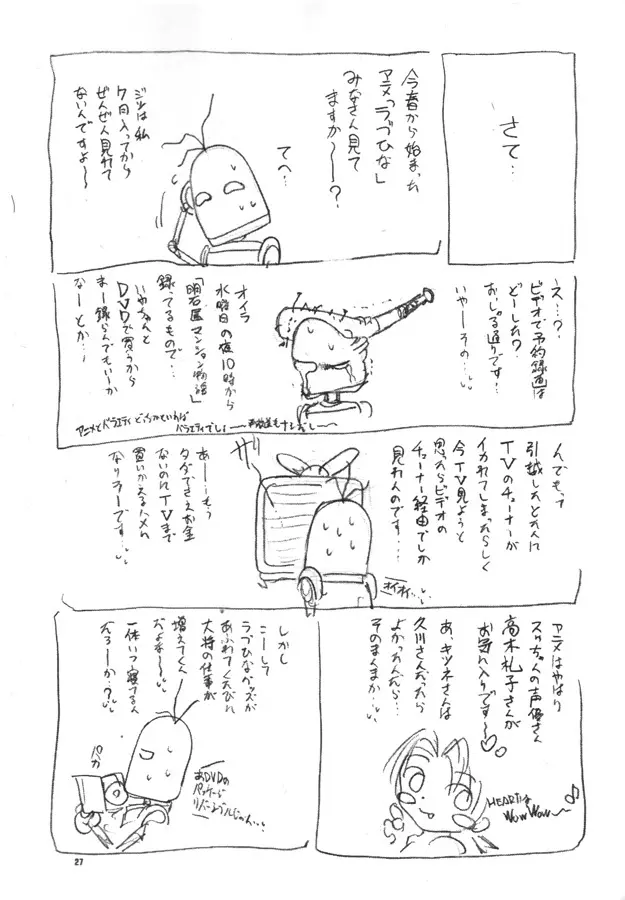 さて…
今春から始まった
アニメ「ラブひな」
みなさん見て
ますか〜?
てへ…
ジツは私
7月入ってから
ぜんぜん見れて
ないんですよ〜
え…?
ビデオで予約録画は
どーした?
おしゃる通りです…
いやーその…
オイラ
水曜日の夜10時から
「明石屋マンション物語」
録ってるもので…
いやちゃんと
DVDで買うから
まー録らんでもいーか
なーとか…
アニメとバラエティどっちかといわれれば
バラエティでしょー
んでもって
引越ししたとたんに
TVのチューナーが
イカれてしまったらしく
今TV見ようと
思ったらビデオの
チューナー経由でしか
見れんのです…
あー…もう
タダでさえ金
ないのにTVまで
買いかえるハメに
なりそーです…
オイオイ…
アニメはやはり
スゥちゃんの声優さん
高木礼子さんが
お気に入りです〜♡
あ、キツネさんは
久川さんだったら
よかったんだが…
そのまんまか…
HEARTは
WOWWOW〜♪
しかし
こーして
ラブひなグッズが
あふれてくるたびに
大将の仕事が
増えてくん
だよな〜
一体いつ寝てるん
だろーか…?
パカ
あDVDの
パッケージ
リバーシブルじゃん…
27